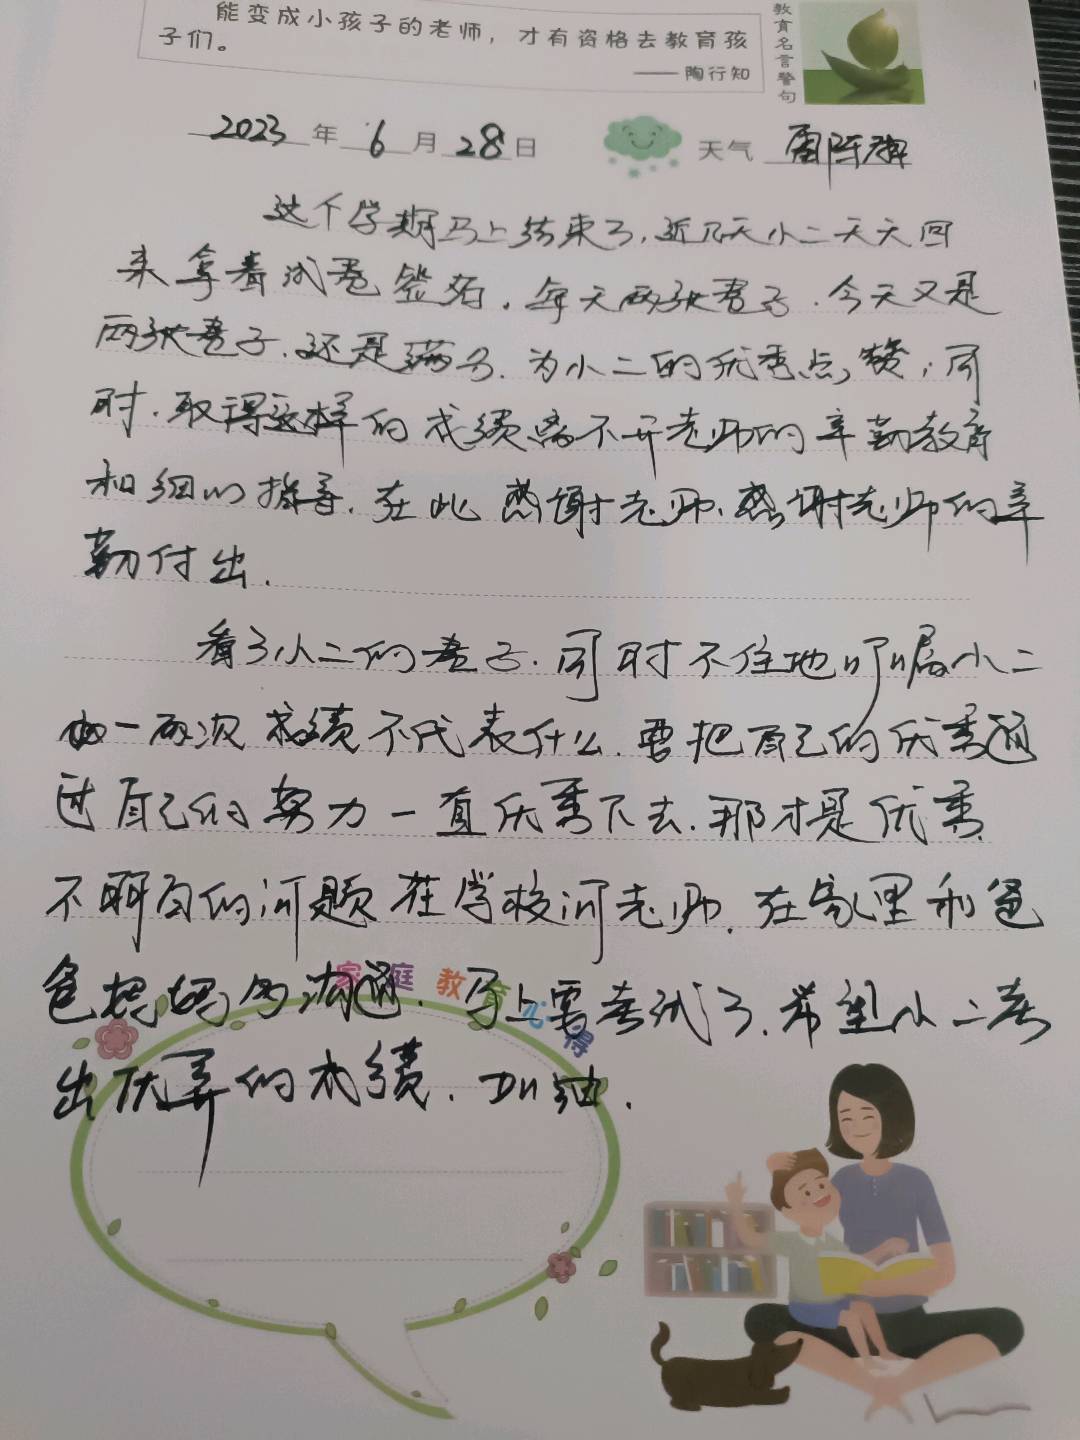 能变成小孩子的老师，才有资格去教育孩
子们。
——陶行知
教育名言警句
2023年6月28日
天气 雷阵雨
这个学期马上结束了,近几天小二天天回
来拿着试卷签名.每天两张卷子.今天又是
两张卷子.还是满分.为小二的优秀点赞,同
时.取得这样的成绩离不开老师的辛勤教育
和细心指导.在此感谢老师.感谢老师的辛
勤付出.
看了小二的卷子.同时不住地叮嘱小二
一两次成绩不代表什么.要把自己的优秀通
过自己的努力一直优秀下去.那才是优秀
不明白的问题在学校问老师.在家里和爸
爸妈妈多沟通.马上要考试了.希望小二考
出优异的成绩.加油.
家庭教育心得